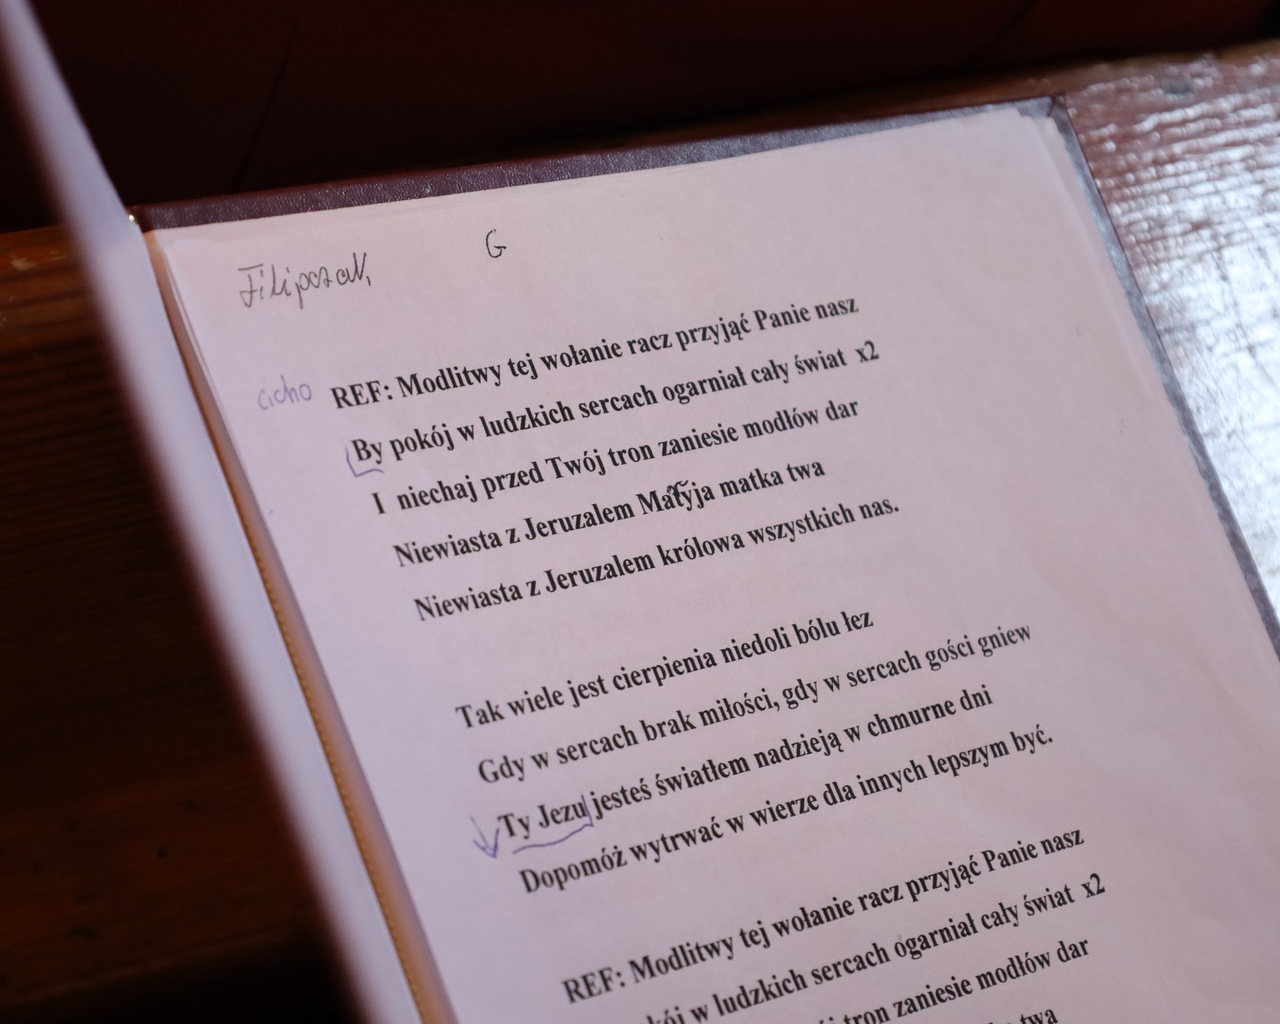 Filipczak G
cicho REF: Modlitwy tej wołanie racz przyjąć Panie nasz
By pokój w ludzkich sercach ogarniał cały świat x2
I niechaj przed Twój tron zaniesie modłów dar
Niewiasta z Jeruzalem Maryja matka twa
Niewiasta z Jeruzalem królowa wszystkich nas.
Tak wiele jest cierpienia niedoli bólu łez
Gdy w sercach brak miłości, gdy w sercach gości gniew
Ty Jezu jesteś światłem nadzieją w chmurne dni
Dopomóż wytrwać w wierze dla innych lepszym być.
REF: Modlitwy tej wołanie racz przyjąć Panie nasz
w ludzkich sercach ogarniał cały świat x2
tron zaniesie modłów dar
twa